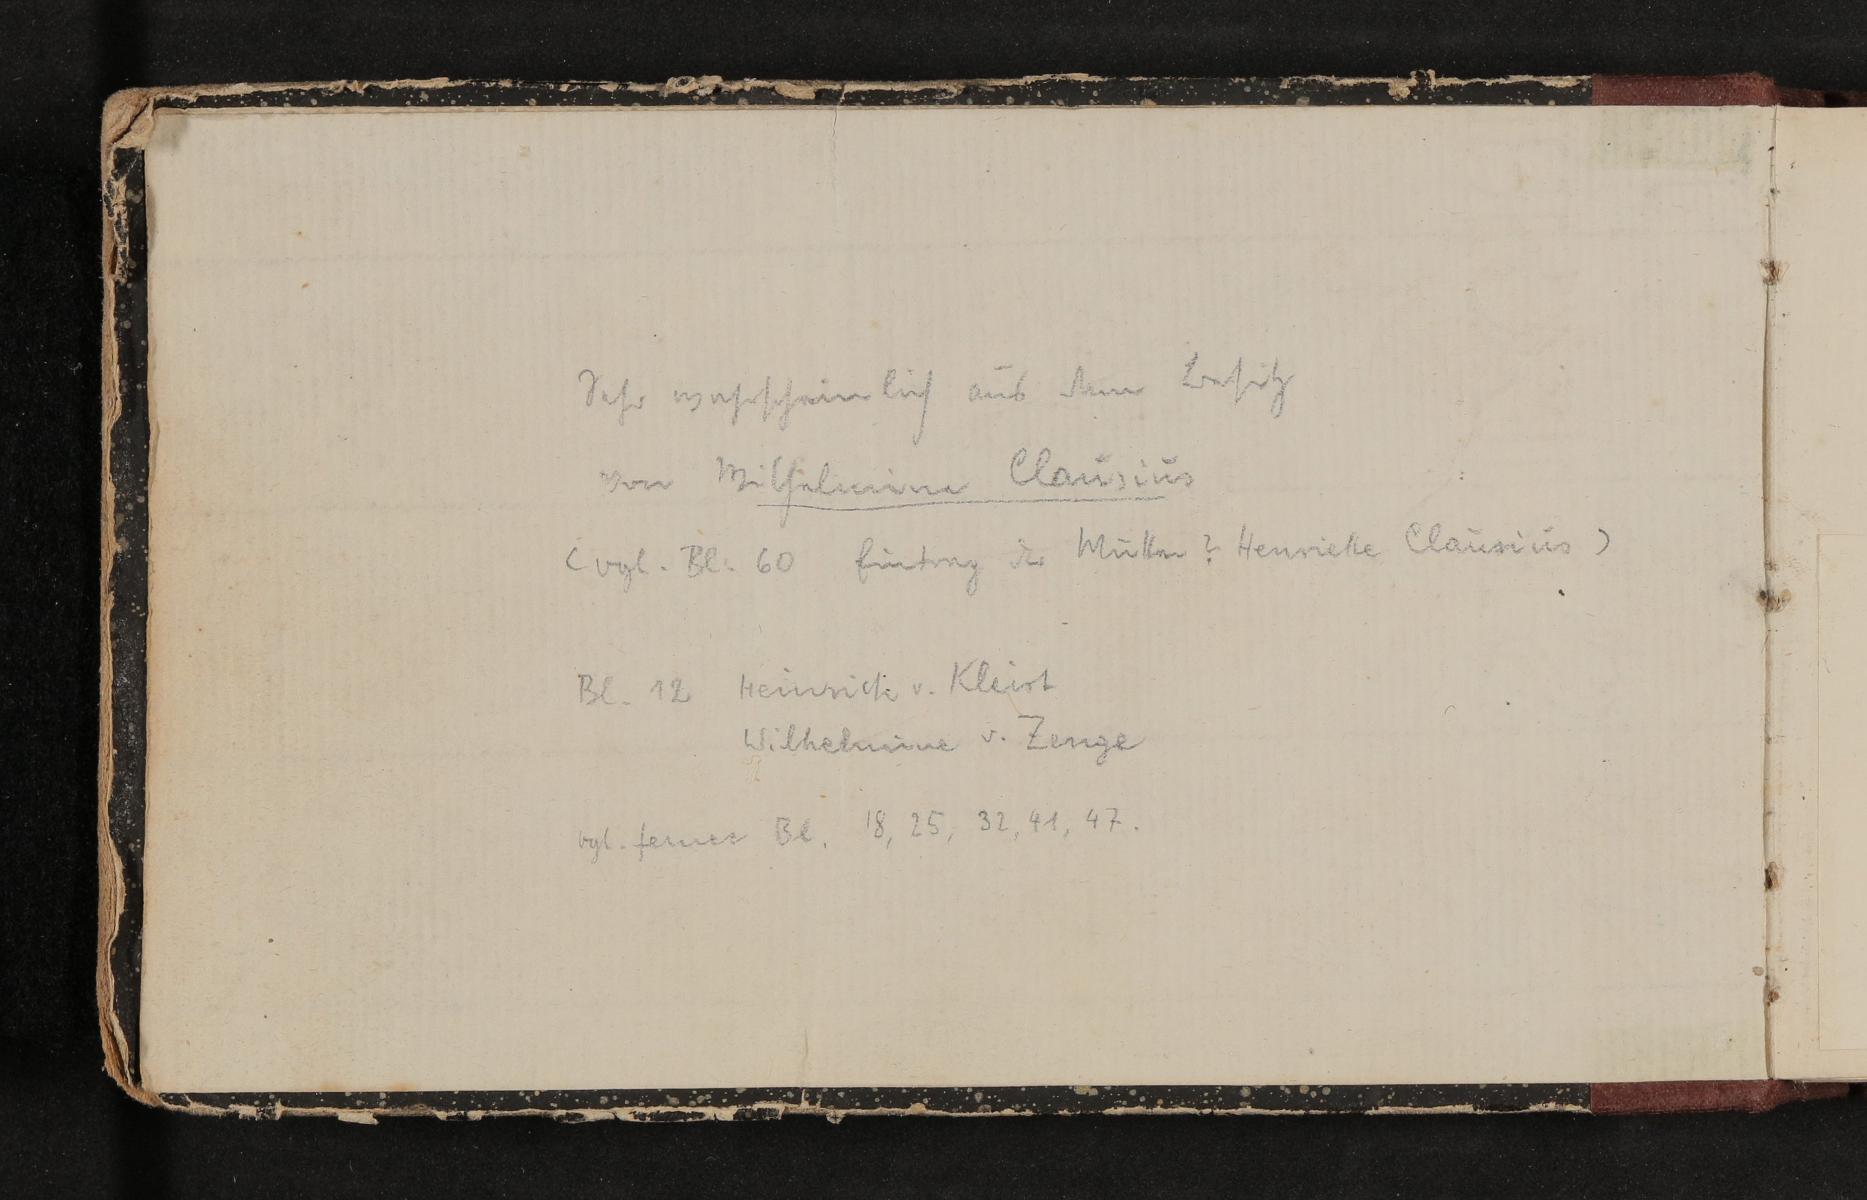 Sehr wahrscheinlich aus dem Besitz
von Wilhelmine Clausius
(vgl. Bl. 60 Eintrag der Mutter? Henriette Clausius)
Bl. 12 Heinrich v. Kleist
Wilhelmine v. Zenge
vgl. ferner Bl. 18, 25, 32, 41, 47.